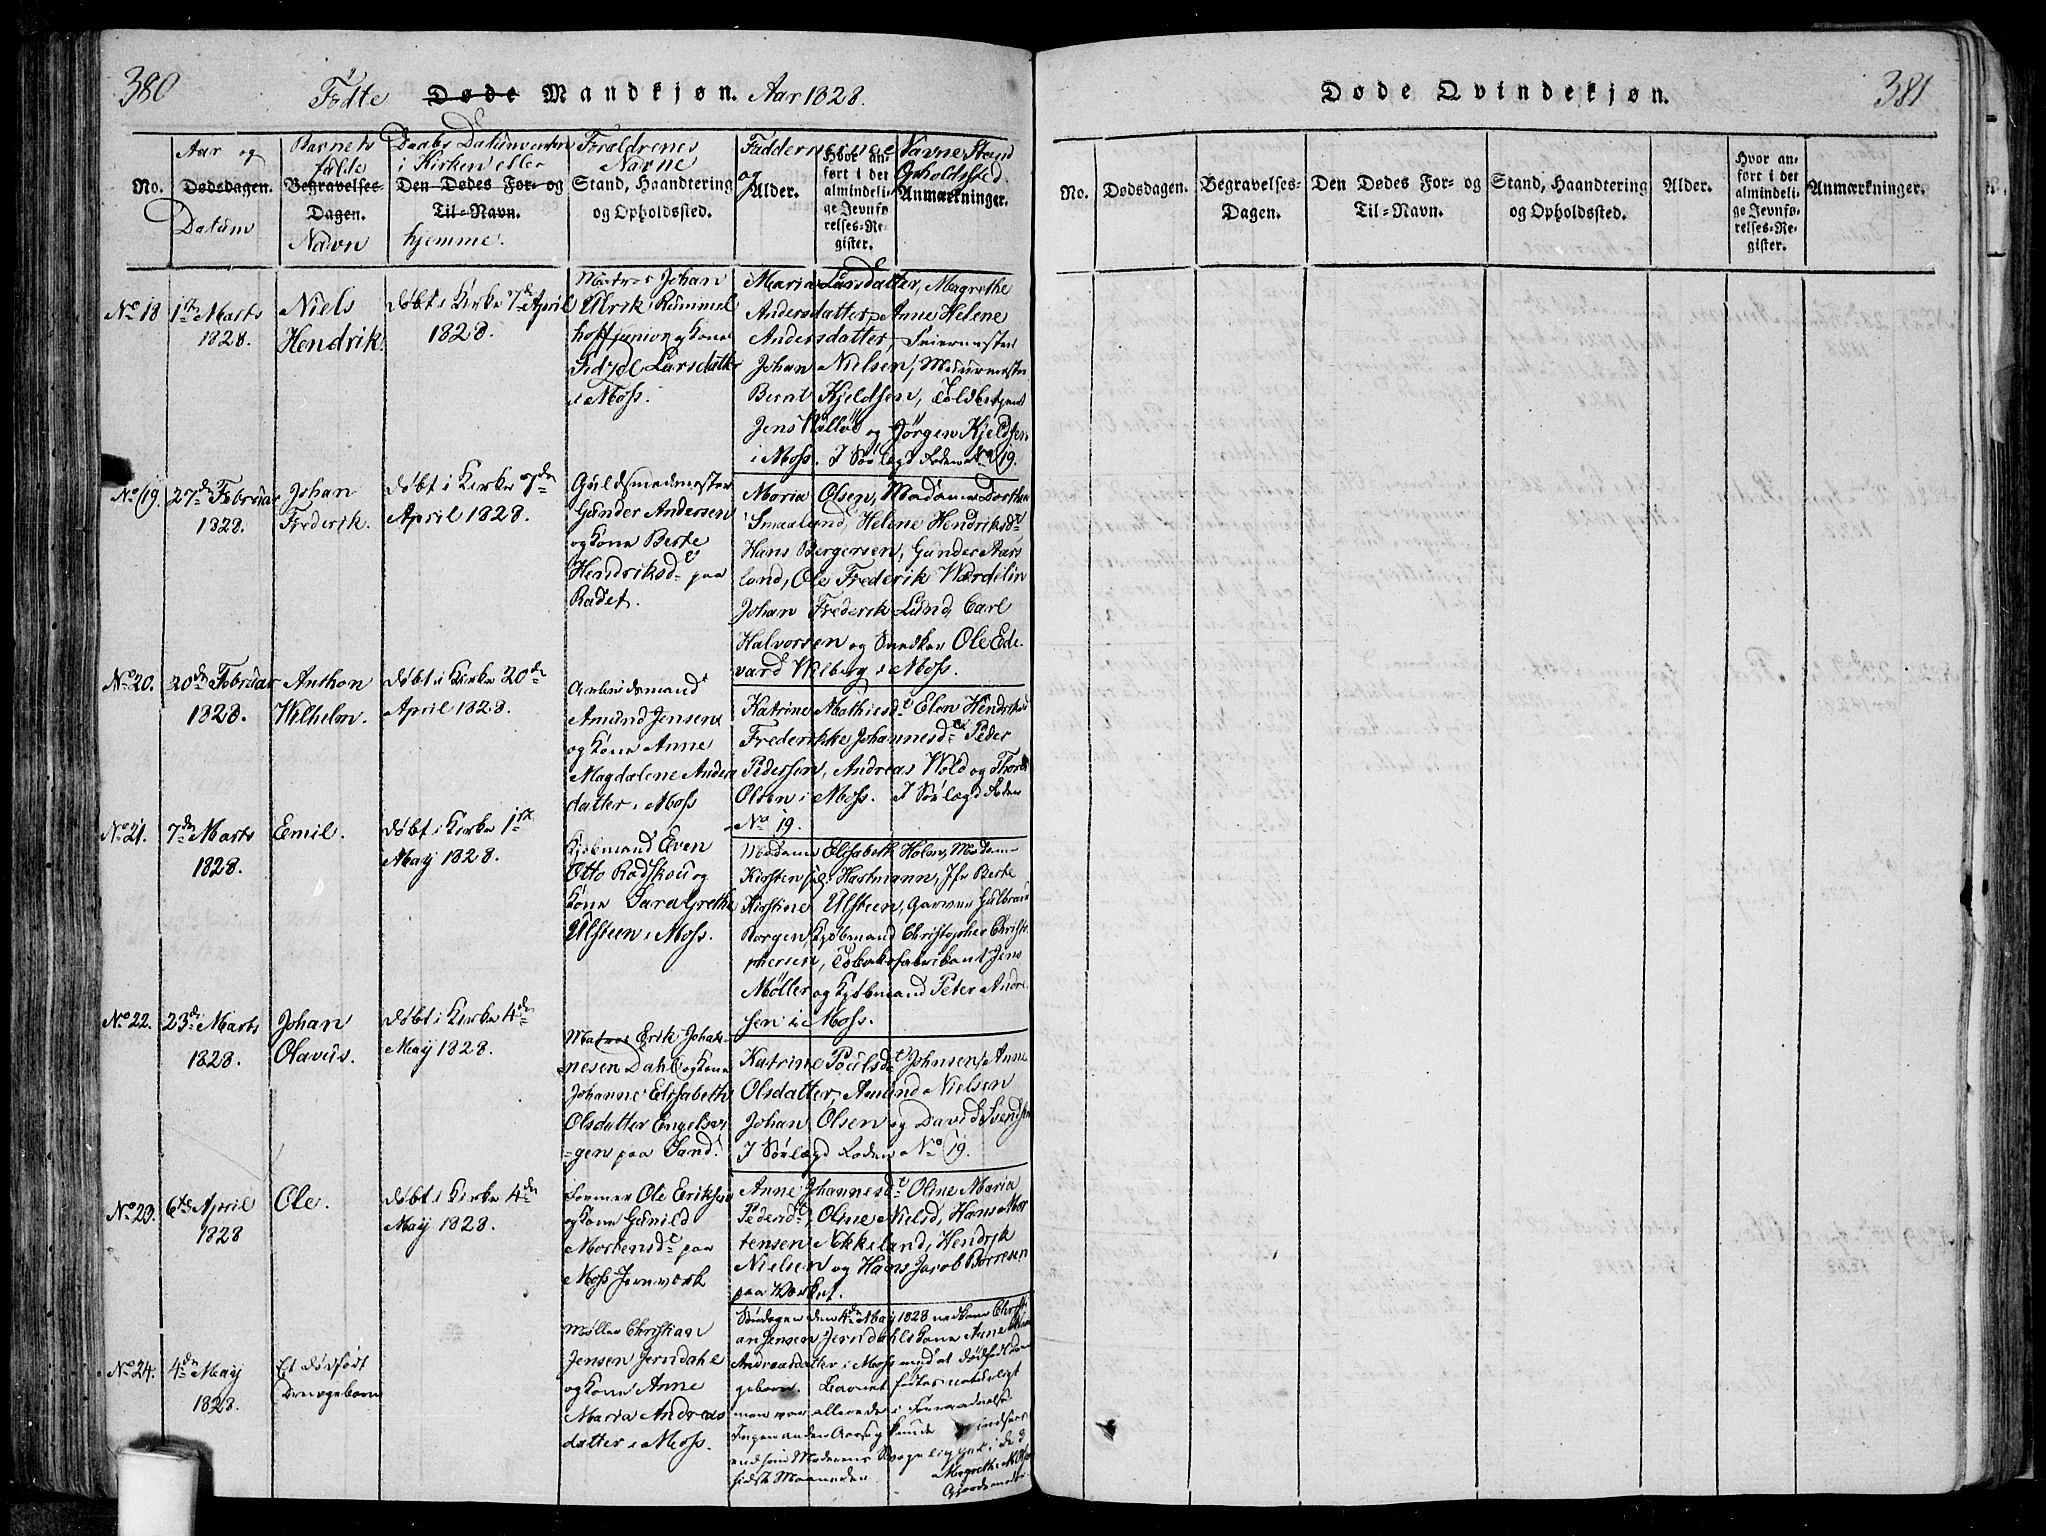 380
Födte Døde Mandkjøn. Aar 1828.
No.
Aar og
Dødsdagen.
Datum
Barnets
fulde
Begravelses-
Dagen.
Navn
Daabs Datum enten
i Kirken eller
Den Dødes For- og
Til-Navn.
hjemme.
Forældrenes
Navne
Stand, Haandtering
og Opholdssted.
Faddernes
og
Alder.
Hvor an-
ført i det
almindeli-
ge Jevnfø-
relses-Re-
gister.
Navne Stand
Opholdssted.
Anmærkninger.
No 18
1ste Marts
1828.
Niels
Hendrik.
døbt i Kirke 7de April
1828.
Matros Johan
Ulrik Rummel
hoff junior og Kone
Sidsel Larsdatter
i Moss.
Maria Larsdatter, Magrethe
Andersdatter, Anne Helene
Andersdatter, Feiermester
Johan Nielsen, Muurmester
Bernt Kjeldsen, Toldbetjent
Jens Wølløe og Jørgen Kjeldsen
i Moss. I Sölægd Roden No 19.
No 19.
27de Februar
1828.
Johan
Frederik.
døbt i Kirke 7de
April 1828.
Guldsmedmester
Gunder Andersen
og Kone Berte
Hendriksdr paa
Rødet.
Maria Olsen, Madame Dorthea
Smaalund, Helene Hendriksdr
Hans Bergersen, Gunder Aars
land, Ole Frederik Wærdelin
Johan Frederik Lund, Carl
Halvorsen og Snedker Ole Ede-
vard Wilberg i Moss.
No 20.
20de Februar
1828.
Anthon
Wilhelm.
døbt i Kirke 20de
April 1828.
Arbeidsmand
Amund Jensen
og Kone Anne
Magdalene Anders
datter i Moss
Katrine Mathiesdr Elen Hendriksd
Frederikke Johannesdr Peder
Pedersen, Andreas Wold og Thord
Olsen i Moss. I Sölægd Roden
No 19.
No 21.
7de Marts
1828.
Emil.
døbt i Kirke 1ste
May 1828.
Kjøbmand Even
Otto Rodskou og
Kone Sara Grethe
Ulsteen i Moss.
Madame Elisabeth Holm, Madame
Kirsten sal. Hartmann, Jfr Berte
Kirstine Ulsteen, Garver Gulbran
Borgen, Kjøbmand Christopher Christo
phersen, Tobaksfabrikant Jens
Møller og Kjøbmand Peter Andre
sen i Moss.
No 22.
23de Marts
1828.
Johan
Olavus.
døbt i Kirke 4de
May 1828.
Matros Erik Johan-
nesen Dahl og Kone
Johanne Elisabeth
Olsdatter Engelsvi-
gen paa Sand.
Katrine Poulsdr Johnsen, Anne
Olsdatter, Amund Nielsen
Johan Olsen og David Svendsen
I Sölægd Roden No 19.
No 23.
6te April
1828
Ole.
døbt i Kirke 4de
May 1828.
Former Ole Eriksen
og Kone Gunild
Mortensdr paa
Moss Jernværk
Anne Johannesdr Oline Maria
Pedersdr, Oline Nielsd, Hans Mor
tensen Nokkeland, Hendrik
Nielsen og Hans Jacob Borresen
paa Værket.
No 24.
4de May
1828.
Et dødfødt
Drengebarn
Møller Christian
Jensen Jerndahl
og Kone Anne
Maria Andreas
datter i Moss.
Søndagen den 4de May 1828 nedkom Christi
an Jensen Jerndahls Kone Anne Maria
Andreasdatter i Moss med et dødfødt Dren
gebarn. Barnet fødtes naturligt
men var allerede i Forraadnelse
Ingen anden Aarsag kunde indsees
end som Moderens Svagelighed i de 3
sidste Maaneder.
Magrethe N. Olsen
Gjordemoder
Døde Qvindekjøn.
381
No.
Dødsdagen.
Begravelses-
Dagen.
Den Dødes For- og
Til-Navn.
Stand, Haandtering
og Opholdssted.
Alder.
Hvor an-
ført i det
almindeli-
ge Jevnfø-
relses-Re-
gister.
Anmærkninger.